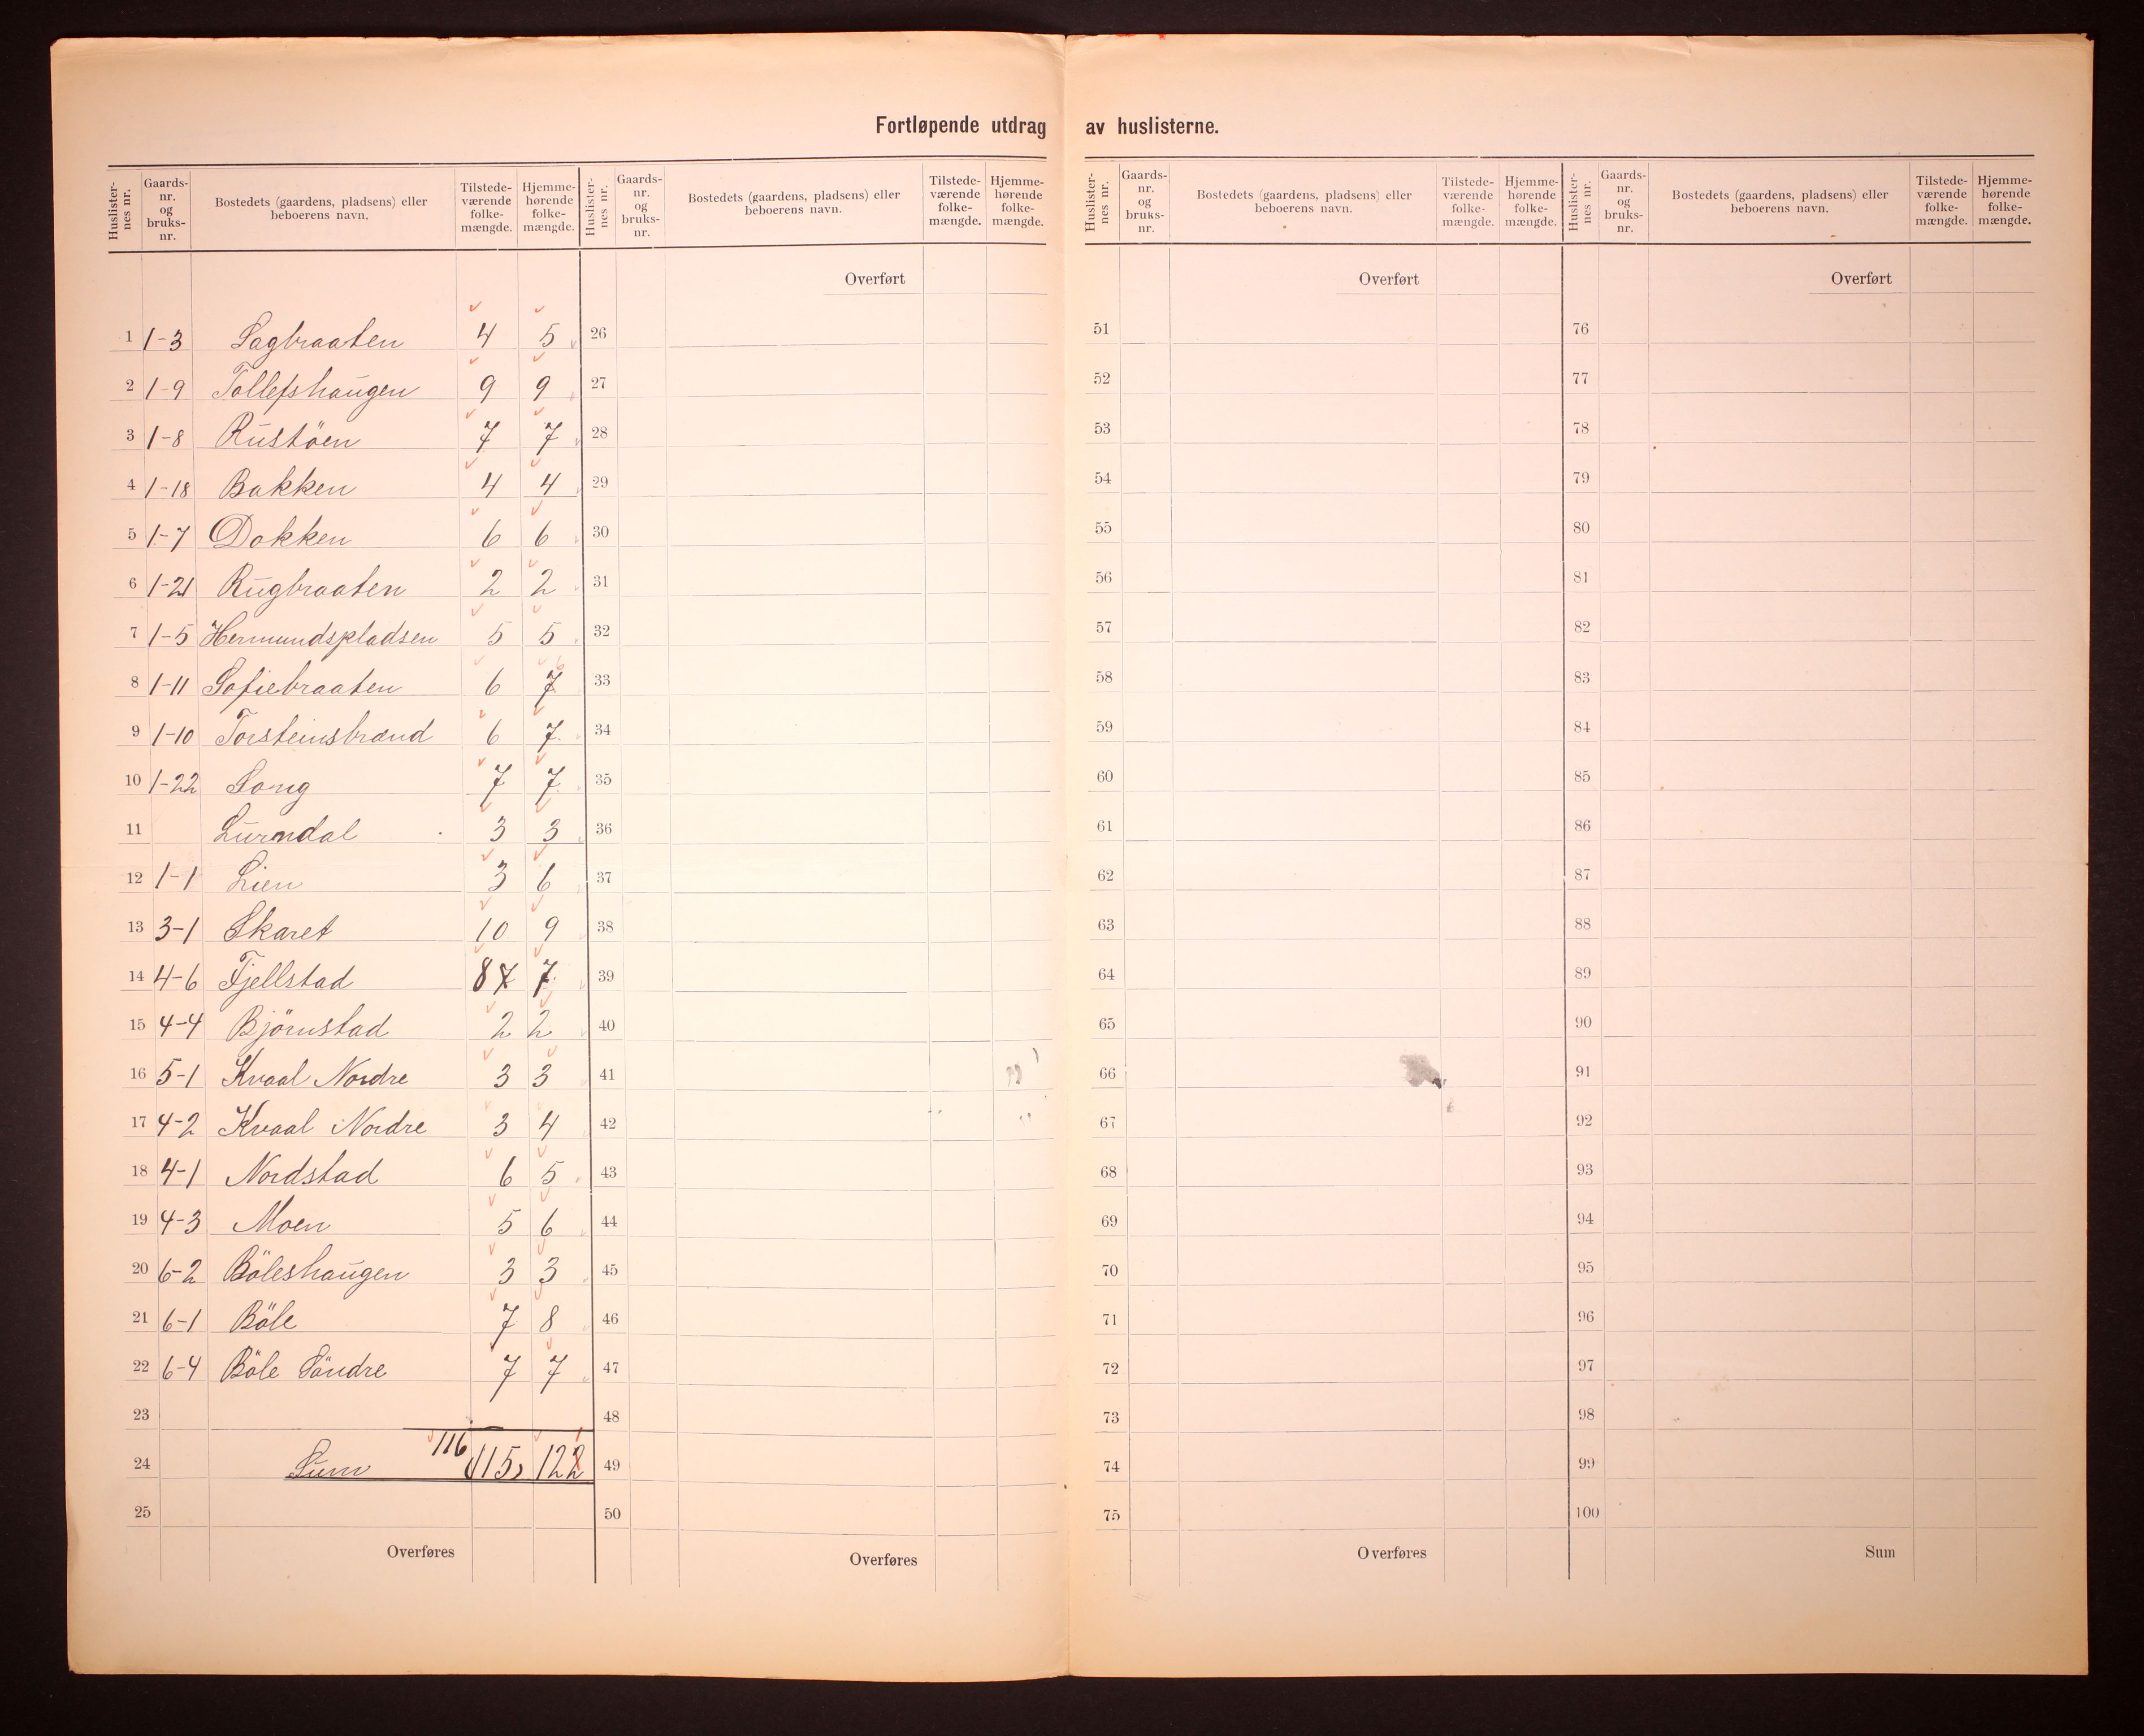 Fortløpende utdrag av huslisterne.
Huslisternes nr. Gaards-nr. og bruks-nr. Bostedets (gaardens, pladsens) eller beboerens navn. Tilstedeværende folkemængde. Hjemmehørende folkemængde.
Huslisternes nr. Gaards-nr. og bruks-nr. Bostedets (gaardens, pladsens) eller beboerens navn. Tilstedeværende folkemængde. Hjemmehørende folkemængde.
Huslisternes nr. Gaards-nr. og bruks-nr. Bostedets (gaardens, pladsens) eller beboerens navn. Tilstedeværende folkemængde. Hjemmehørende folkemængde.
Huslisternes nr. Gaards-nr. og bruks-nr. Bostedets (gaardens, pladsens) eller beboerens navn. Tilstedeværende folkemængde. Hjemmehørende folkemængde.
Overført Overført Overført
1 1-3 Sagbraaten 4 5 26 51 76
2 1-9 Tollefshaugen 9 9 27 52 77
3 1-8 Rustöen 7 7 28 53 78
4 1-18 Bakken 4 4 29 54 79
5 1-7 Dokken 6 6 30 55 80
6 1-21 Rugbraaten 2 2 31 56 81
7 1-5 Hermundspladsen 5 5 32 57 82
8 1-11 Sofiebraaten 6 7 6 33 58 83
9 1-10 Torsteinsbrænd 6 7 34 59 84
10 1-22 Song 7 7 35 60 85
11 Lurndal 3 3 36 61 86
12 1-1 Lien 3 6 37 62 87
13 3-1 Skaret 10 9 38 63 88
14 4-6 Fjellstad 8 7 7 39 64 89
15 4-4 Björnstad 2 2 40 65 90
16 5-1 Kvaal Nordre 3 3 41 66 91
17 4-2 Kvaal Nordre 3 4 42 67 92
18 4-1 Nordstad 6 5 43 68 93
19 4-3 Moen 5 6 44 69 94
20 6-2 Böleshaugen 3 3 45 70 95
21 6-1 Böle 7 8 46 71 96
22 6-4 Böle Söndre 7 7 47 72 97
23 48 73 98
24 Sum 116 115 122 1 49 74 99
25 50 75 100
Overføres Overføres Overføres Sum